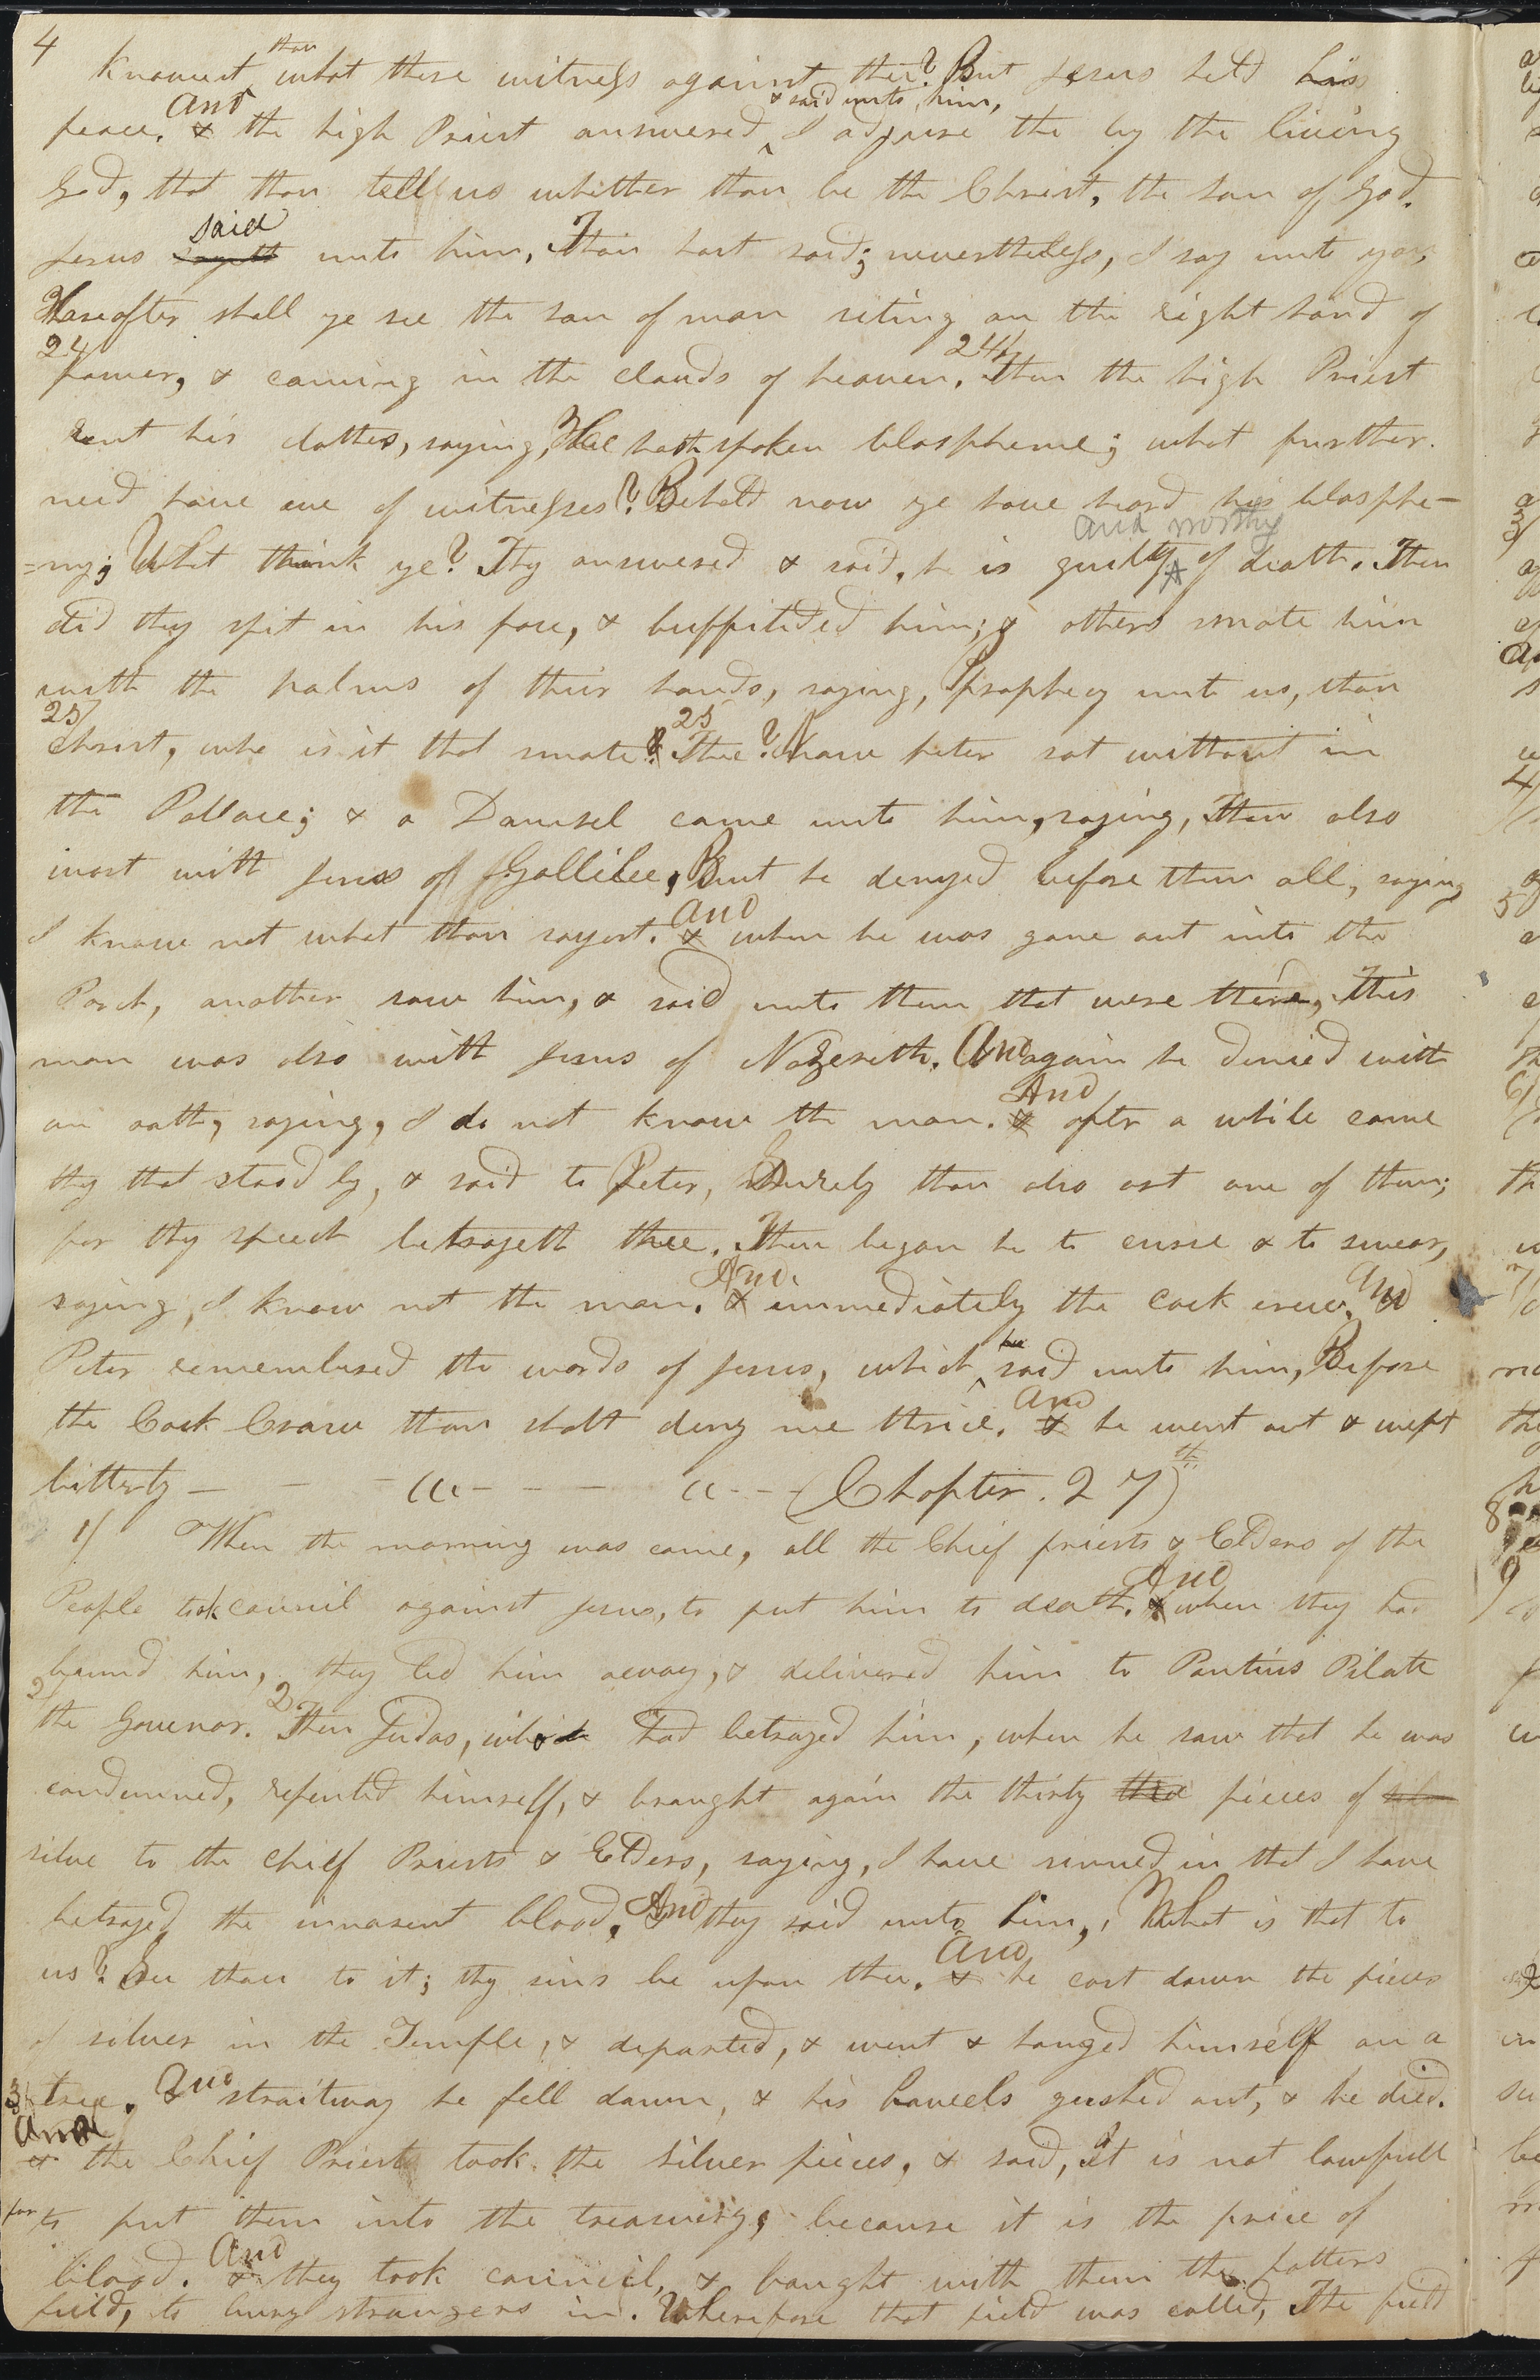 4
Knowest thou what these witness against thee? But Jesus held his
peace. & And the high Priest answered & said unto him, I adjure the by the living
God, that thou tell us whither thou be the Christ, the son of God.
Jesus sayeth said unto him, Thou hast said; nevertheless, I say unto you,
Hereafter shall ye see the son of man siting on the right hand of
24 power, & coming in the clouds of heaven. 24/ Then the high Priest
rent his clothes, saying, He hath spoken blaspheme; what further
need have we of witnesses? Behold now ye have heard his blasphe-
=my; What think ye? They answered & said, he is guilty and worthy of death. Then
did they spit in his face, & buffitided him; & others smote him
with the palms of their hands, saying, Prophecy unto us, thou
25/ Christ, who is it that smote 25 Thee? Now peter sat without in
the Pallace; & a Damsel came unto him, saying, Thou also
wast with Jesus of Gallilee, But he denyed before them all, saying
I know not what thou sayest. & And when he was gone out into the
Porch, another saw him, & said unto them that were there, This
man was also with Jesus of Nazereth. And again he denied with
an oath, saying, I do not know the man. & And after a while came
they that stood by, & said to Peter, Surely thou also art one of them;
for thy speech betrayeth thee. Then began he to curse & to swear,
saying, I know not the man. & And immediately the cock crew. And
Peter remembered the words of Jesus, which he said unto him, Before
the Cock Crow thou shalt deny me thrice. & And he went out & wept
bitterly — - - ((( - - - (( - - - (Chapter. 27)th
1/ When the morning was come, all the Chief priests & Elders of the
People took council against Jesus, to put him to death. & And when they had
bound him, they led him away, & delivered him to Pontius Pilate
2/ the Govenor. 2 Then Judas, who had betrayed him, when he saw that he was
condemned, repented himself, & brought again the thirty pieces of
silve to the chief Priests & Elders, saying, I have sinned in that I have
betrayed the innosent blood. And they said unto him, What is that to
us? See thou to it; thy sins be upon thee. & And he cast down the pieces
of silver in the Temple, & departed, & went & hanged himself on a
3/ tree. And straitway he fell down, & his bowels gushed out, & he died.
& And the Chief Priests took the silver pieces, & said, It is not lawfull
for to put them into the treasury, because it is the price of
blood. & And they took council, & bought with them the potters
field, to bury strangers in. Wherefore that field was called, The field